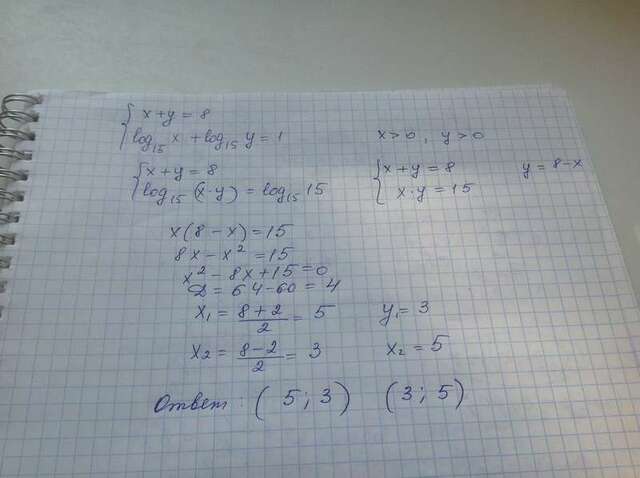 { x+y = 8
log₁₅ x + log₁₅ y = 1 x>0, y>0
{ x+y = 8 { x+y = 8 y = 8-x
log₁₅ (x·y) = log₁₅ 15 x·y = 15
x(8-x) = 15
8x - x² = 15
x² - 8x + 15 = 0
D = 64-60 = 4
x₁ = (8+2)/2 = 5 y₁ = 3
x₂ = (8-2)/2 = 3 x₂ = 5
Ответ: (5; 3) (3; 5)